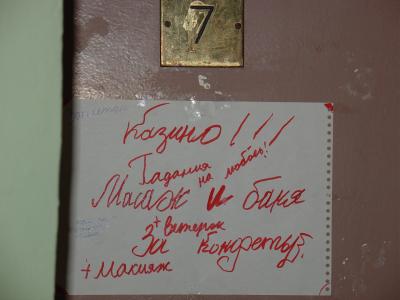 7
Казино!!!
Гадания
на любовь!
Массаж и баня
+ Ветерок
За конфеты
+ Макияж